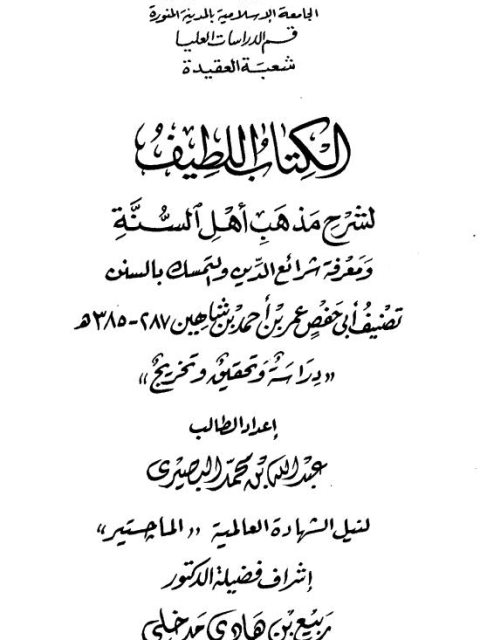 الجامعة الإسلامية بالمدينة المنورة
قسم الدراسات العليا
شعبة العقيدة
الكِتابُ اللطِيفُ
لشرح مَذهَبِ أهْلِ السُّنَّةِ
وَمَعْرفة شرائع الدِّين والتمسك بالسنن
تصْنيفُ أبي حَفْصٍ عمر بْن أحمد بْن شاهِين ٢٨٧-٣٨٥هـ
«دِرَاسَةٌ وَتحقيقٌ وتخريجٌ»
إعداد الطالب
عبد الله بْن محمّد البصيرى
لنيل الشهادة العالمية «الماچستير»
إشراف فضيلة الدكتور
رَبيع بْن هَادِي مَدخلي